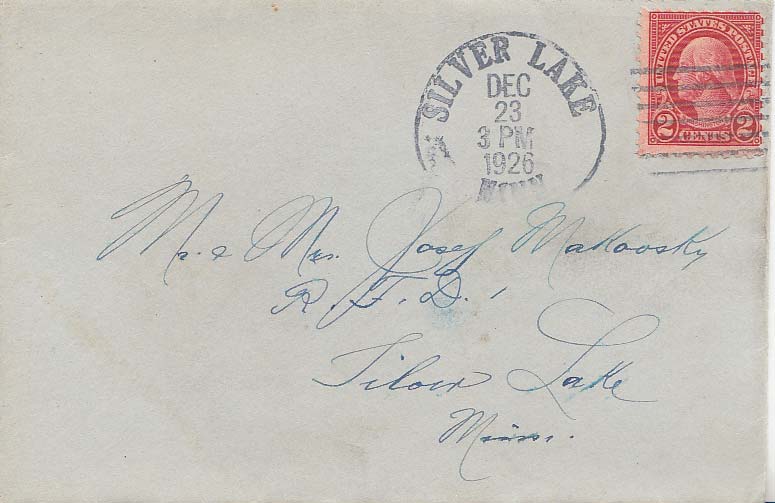 SILVER LAKE
DEC
23
3 PM
1926
MINN
UNITED STATES POSTAGE
2 CENTS 2
Mr. & Mrs. Josef Makovsky
R. F. D. 1
Silver Lake
Minn.